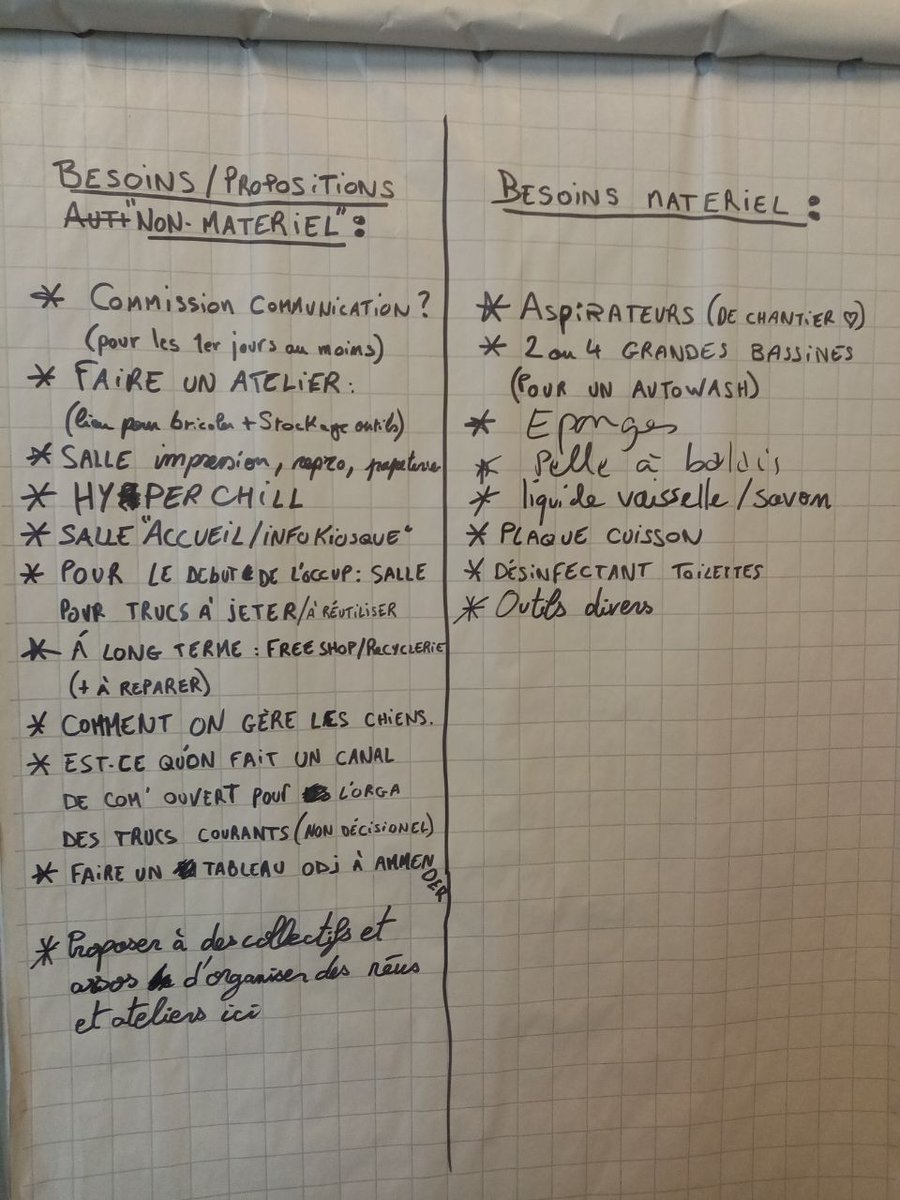 BESOINS/PROPOSITIONS
AUTI "NON-MATERIEL":
* COMMISSION COMMUNICATION?
(pour les 1er jours au moins)
* FAIRE UN ATELIER:
(lieu pour bricoler + Stockage outils)
* SALLE impression, repro, papeterie
* HYPER CHILL
* SALLE "ACCUEIL/INFOKIOSQUE"
* POUR LE DEBUT DE L'OCCUP: SALLE
POUR TRUCS À JETER/À RÉUTILISER
* À LONG TERME: FREE SHOP/RECYCLERIE
(+ À REPARER)
* COMMENT ON GÈRE LES CHIENS.
* EST-CE QU'ON FAIT UN CANAL
DE COM' OUVERT POUR L'ORGA
DES TRUCS COURANTS (NON DÉCISIONEL)
* FAIRE UN TABLEAU ODJ À AMMENDER
* Proposer à des collectifs et
assos d'organiser des réus
et ateliers ici
BESOINS MATERIEL:
* ASPIRATEURS (DE CHANTIER ♡)
* 2 ou 4 GRANDES BASSINES
(POUR UN AUTOWASH)
* Eponges
* Pelle à balais
* liquide vaisselle/savon
* PLAQUE CUISSON
* DÉSINFECTANT TOILETTES
* Outils divers